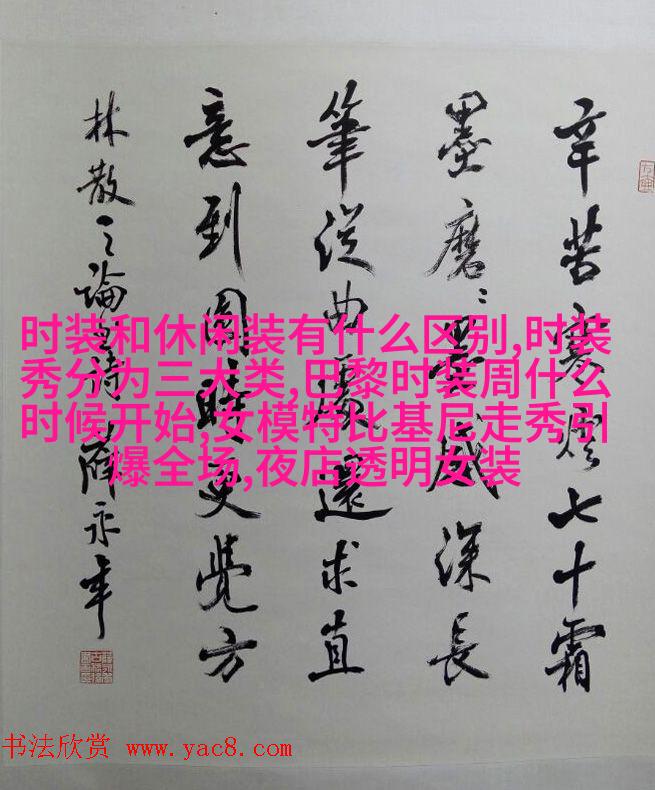 辛苦寒燈七十霜
墨磨々墨感深長
筆從曲處還求直
意到圓時更覺方
林散之論書詩 薛永年
时装和休闲装有什么区别,时装
秀分为三大类,巴黎时装周什么
时候开始,女模特比基尼走秀引
爆全场,夜店透明女装
书法欣赏 www.yac8.com